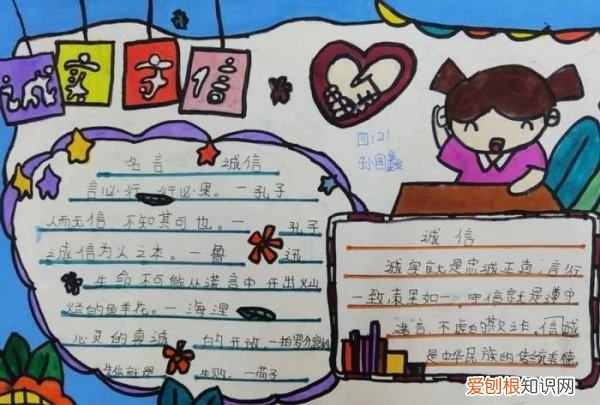 诚实守信
四(2)
名言 诚信
言必行 行必果。一孔子
人而无信 不知其可也。一 孔子
诚信为人之本。一鲁 迅
生命不可能从谎言中开出灿
烂的鲜花。一海涅
心灵的真诚 的开放 一
失信就是 失败。一
诚信
诚实就是忠诚正直，言行
一致表里如一 守信就是遵守
诺言、不虚的欺诈，信诚
是中华民族的传统美德
爱刨根知识网